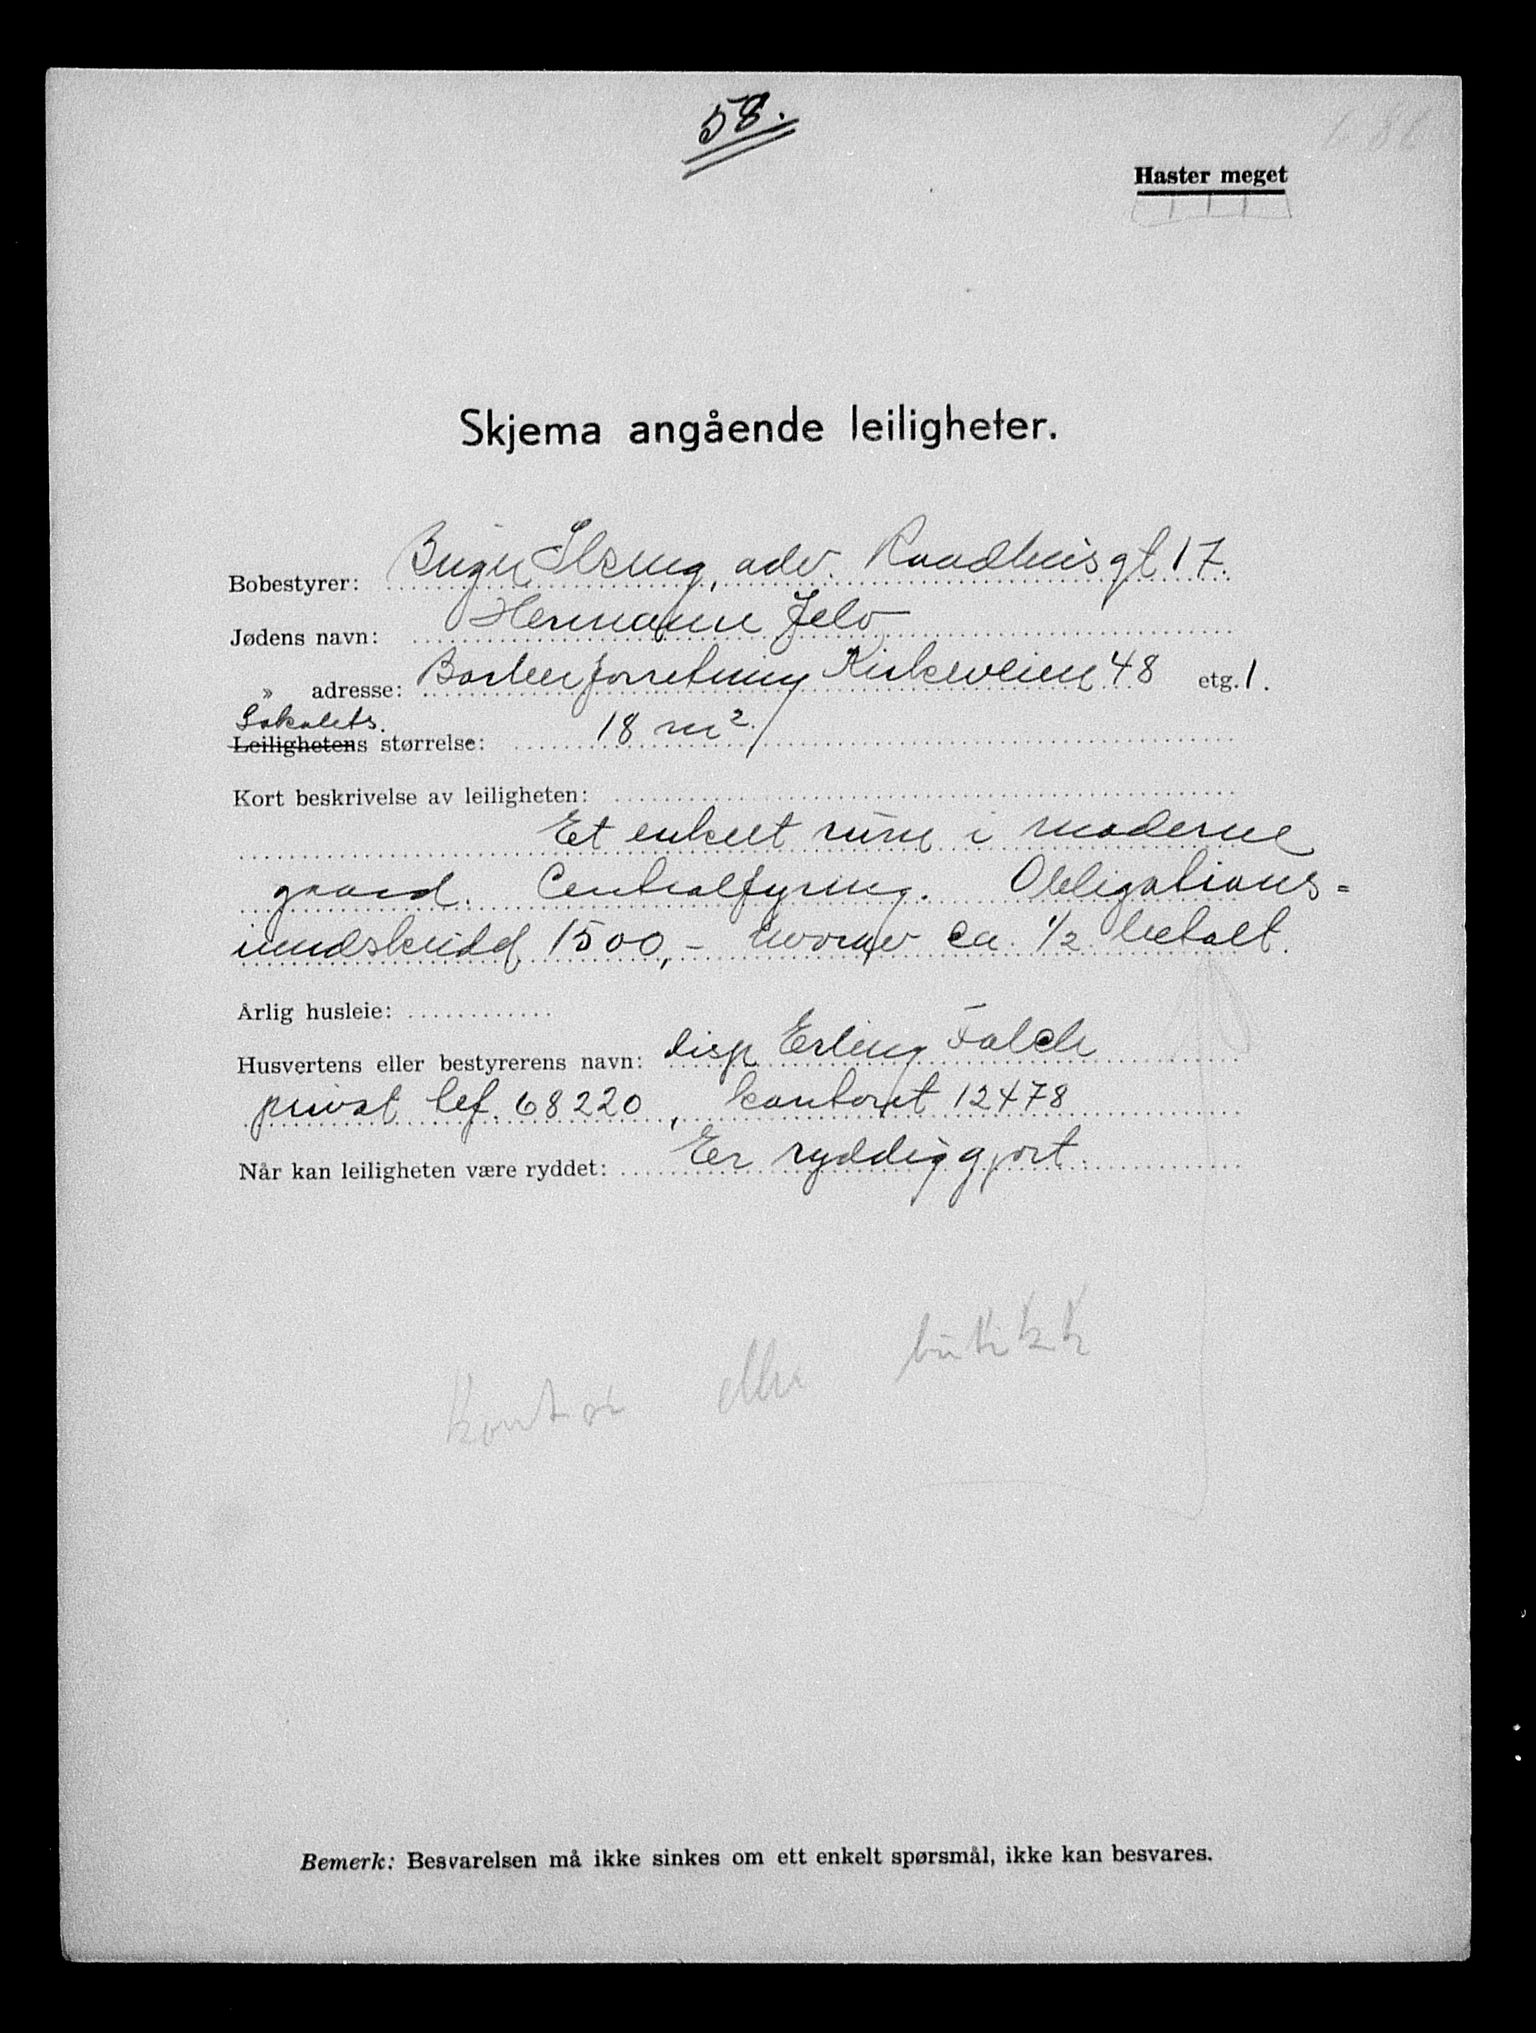 58.
Haster meget
Skjema angående leiligheter.
Bobestyrer: Birger adv. Raadhusgt 17.
Jødens navn: Hermann Jelo
» adresse: Barberforretning Kirkeveien 48 etg. 1.
Lokalets
Leilighetens størrelse: 18 m².
Kort beskrivelse av leiligheten:
Et enkelt rum i moderne
gaard. Centralfyring. Obligations-
innskudd 1500,- hvorav ca. 1/2 betalt.
Årlig husleie:
Husvertens eller bestyrerens navn: disp Erling Falch
privat tef. 68220, kontoret 12478
Når kan leiligheten være ryddet: Er ryddiggjort.
Kontor eller butikk
Bemerk: Besvarelsen må ikke sinkes om ett enkelt spørsmål, ikke kan besvares.